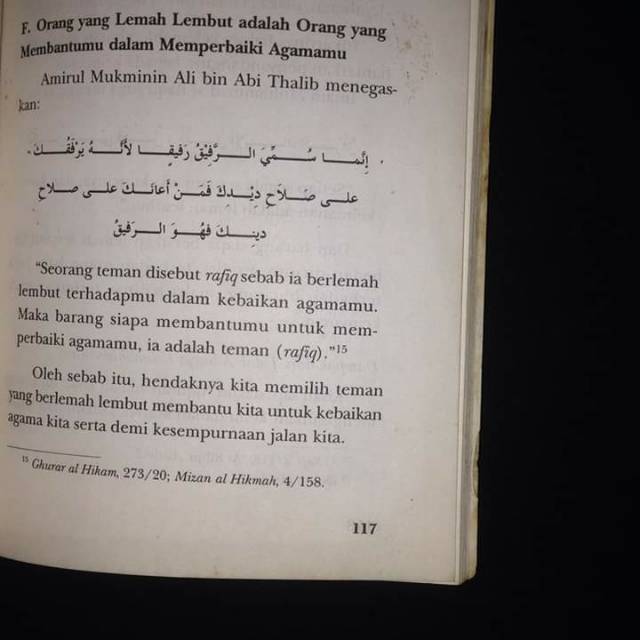 F. Orang yang Lemah Lembut adalah Orang yang
Membantumu dalam Memperbaiki Agamamu
Amirul Mukminin Ali bin Abi Thalib menegas-
kan:
. إِنَّمَا سُمِّيَ الرَّفِيْقُ رَفِيقا لأَنَّهُ يَرْفَقُكَ .
على صَلاَحِ دِيْنِكَ فَمَنْ أَعانَكَ على صلاحِ
دينِكَ فهُوَ الرَفيقُ
"Seorang teman disebut rafīq sebab ia berlemah
lembut terhadapmu dalam kebaikan agamamu.
Maka barang siapa membantumu untuk mem-
perbaiki agamamu, ia adalah teman (rafīq)."15
Oleh sebab itu, hendaknya kita memilih teman
yang berlemah lembut membantu kita untuk kebaikan
agama kita serta demi kesempurnaan jalan kita.
15 Ghurar al Hikam, 273/20; Mizan al Hikmah, 4/158.
117